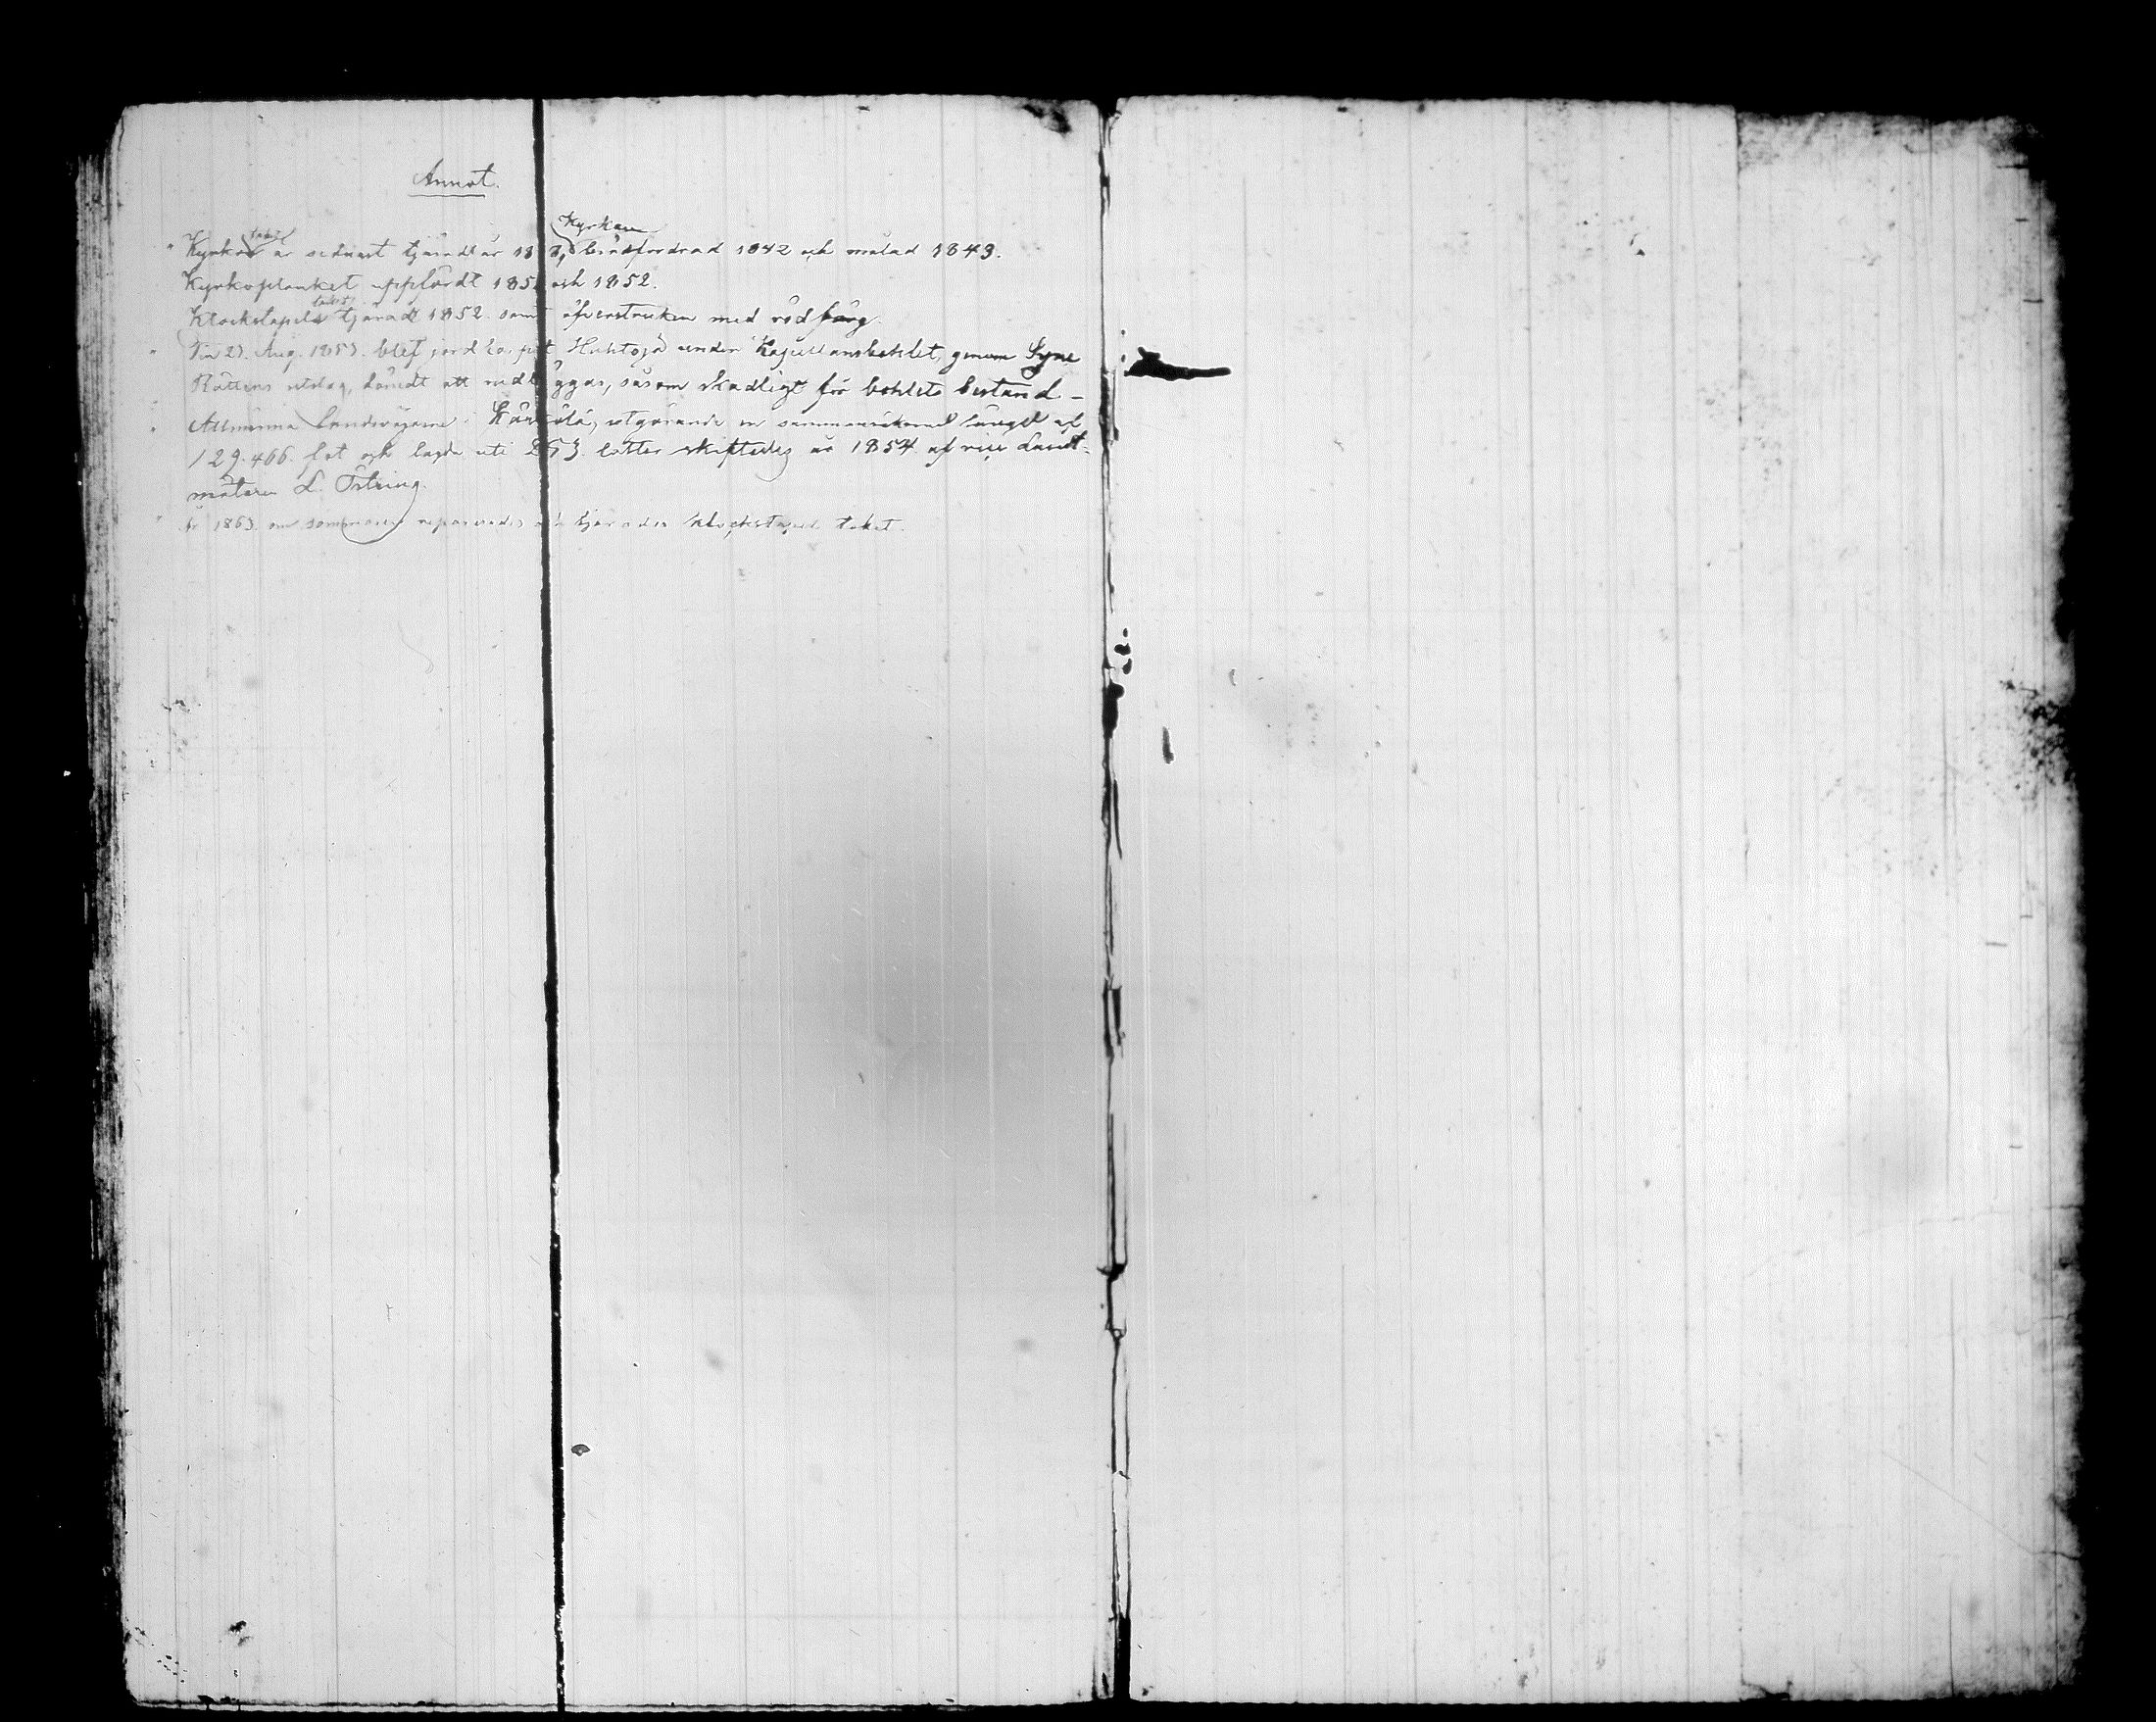 Annot.
Kyrko taket är sednast tjäradt år 18 Kyrkan brädfordrad 1842 och målad 1843.
Kyrkoplanket uppfördt 1851 och 1852.
Klockstapels taket tjäradt 1852 samt öfverstruken med röd färg.
Den 23. Aug. 1853. blef jordtorpet Huhtoja under Kapellansbohlet, genom Syne
Rättens utslag, dömdt att nedläggas, såsom skadligt för bohlets bestånd –
Allmänna Landsvägarne i Kärkölä, utgörande en sammanräknad längd af
129.466. fot och lagda uti 253. lotter skiftades år 1854 af vice Landt-
mätaren L. Östring.
År 1863. om sommaren reparerades och tjärades Klockstapel taket.